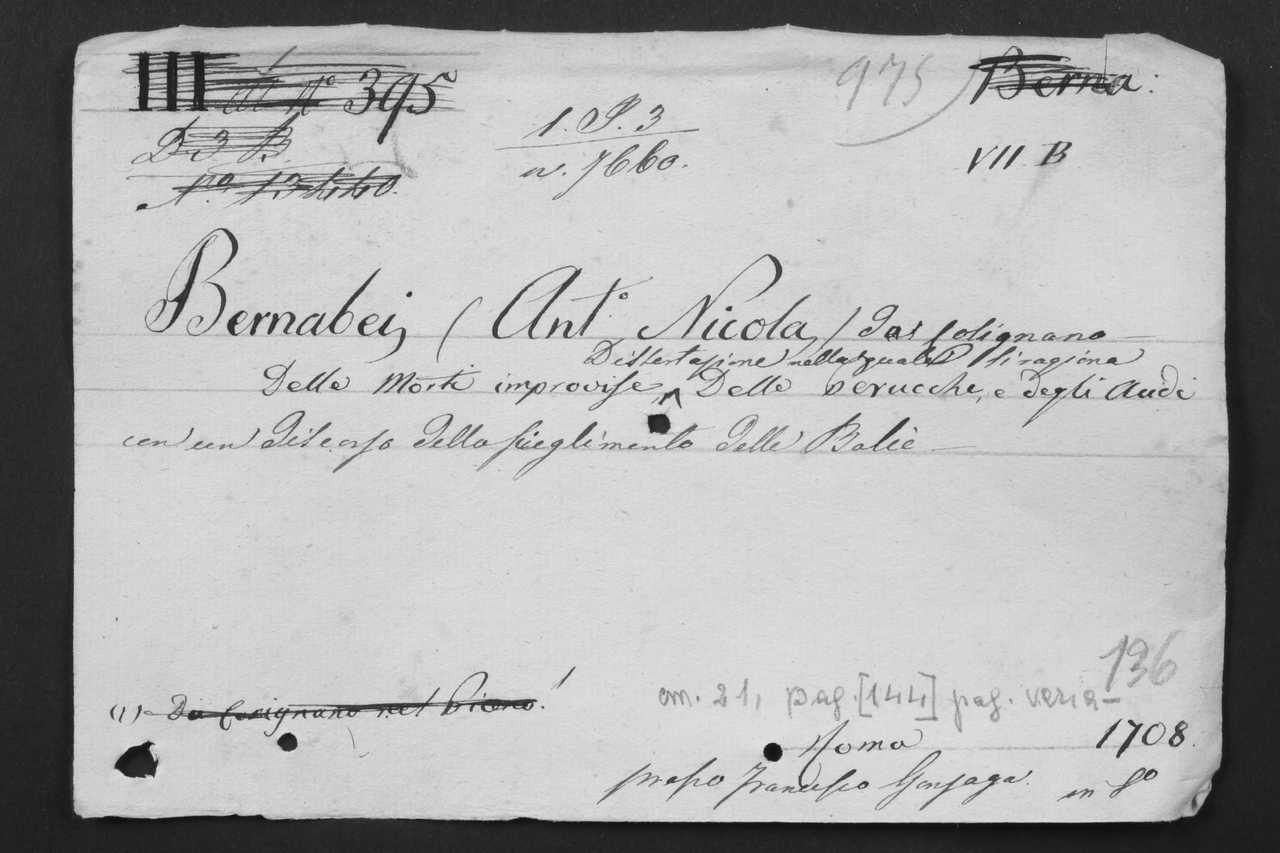 III N° 395
975
Berna:
D 3 B.
1. P. 3
n. 7660.
VII B
N° 13440.
Bernabei, (Ant.° Nicola) da Cosignano
Dissertazione nella quale si ragiona
Delle Morti improvise, ^ Delle Verucche, e degli Acidi
con un discorso dello sieglimento delle Balie
(1) Da Cosignano nel Piceno.
136
cm. 21, pag. [144] pag. varia-
Roma 1708.
presso Francesco Gonzaga. in 8°